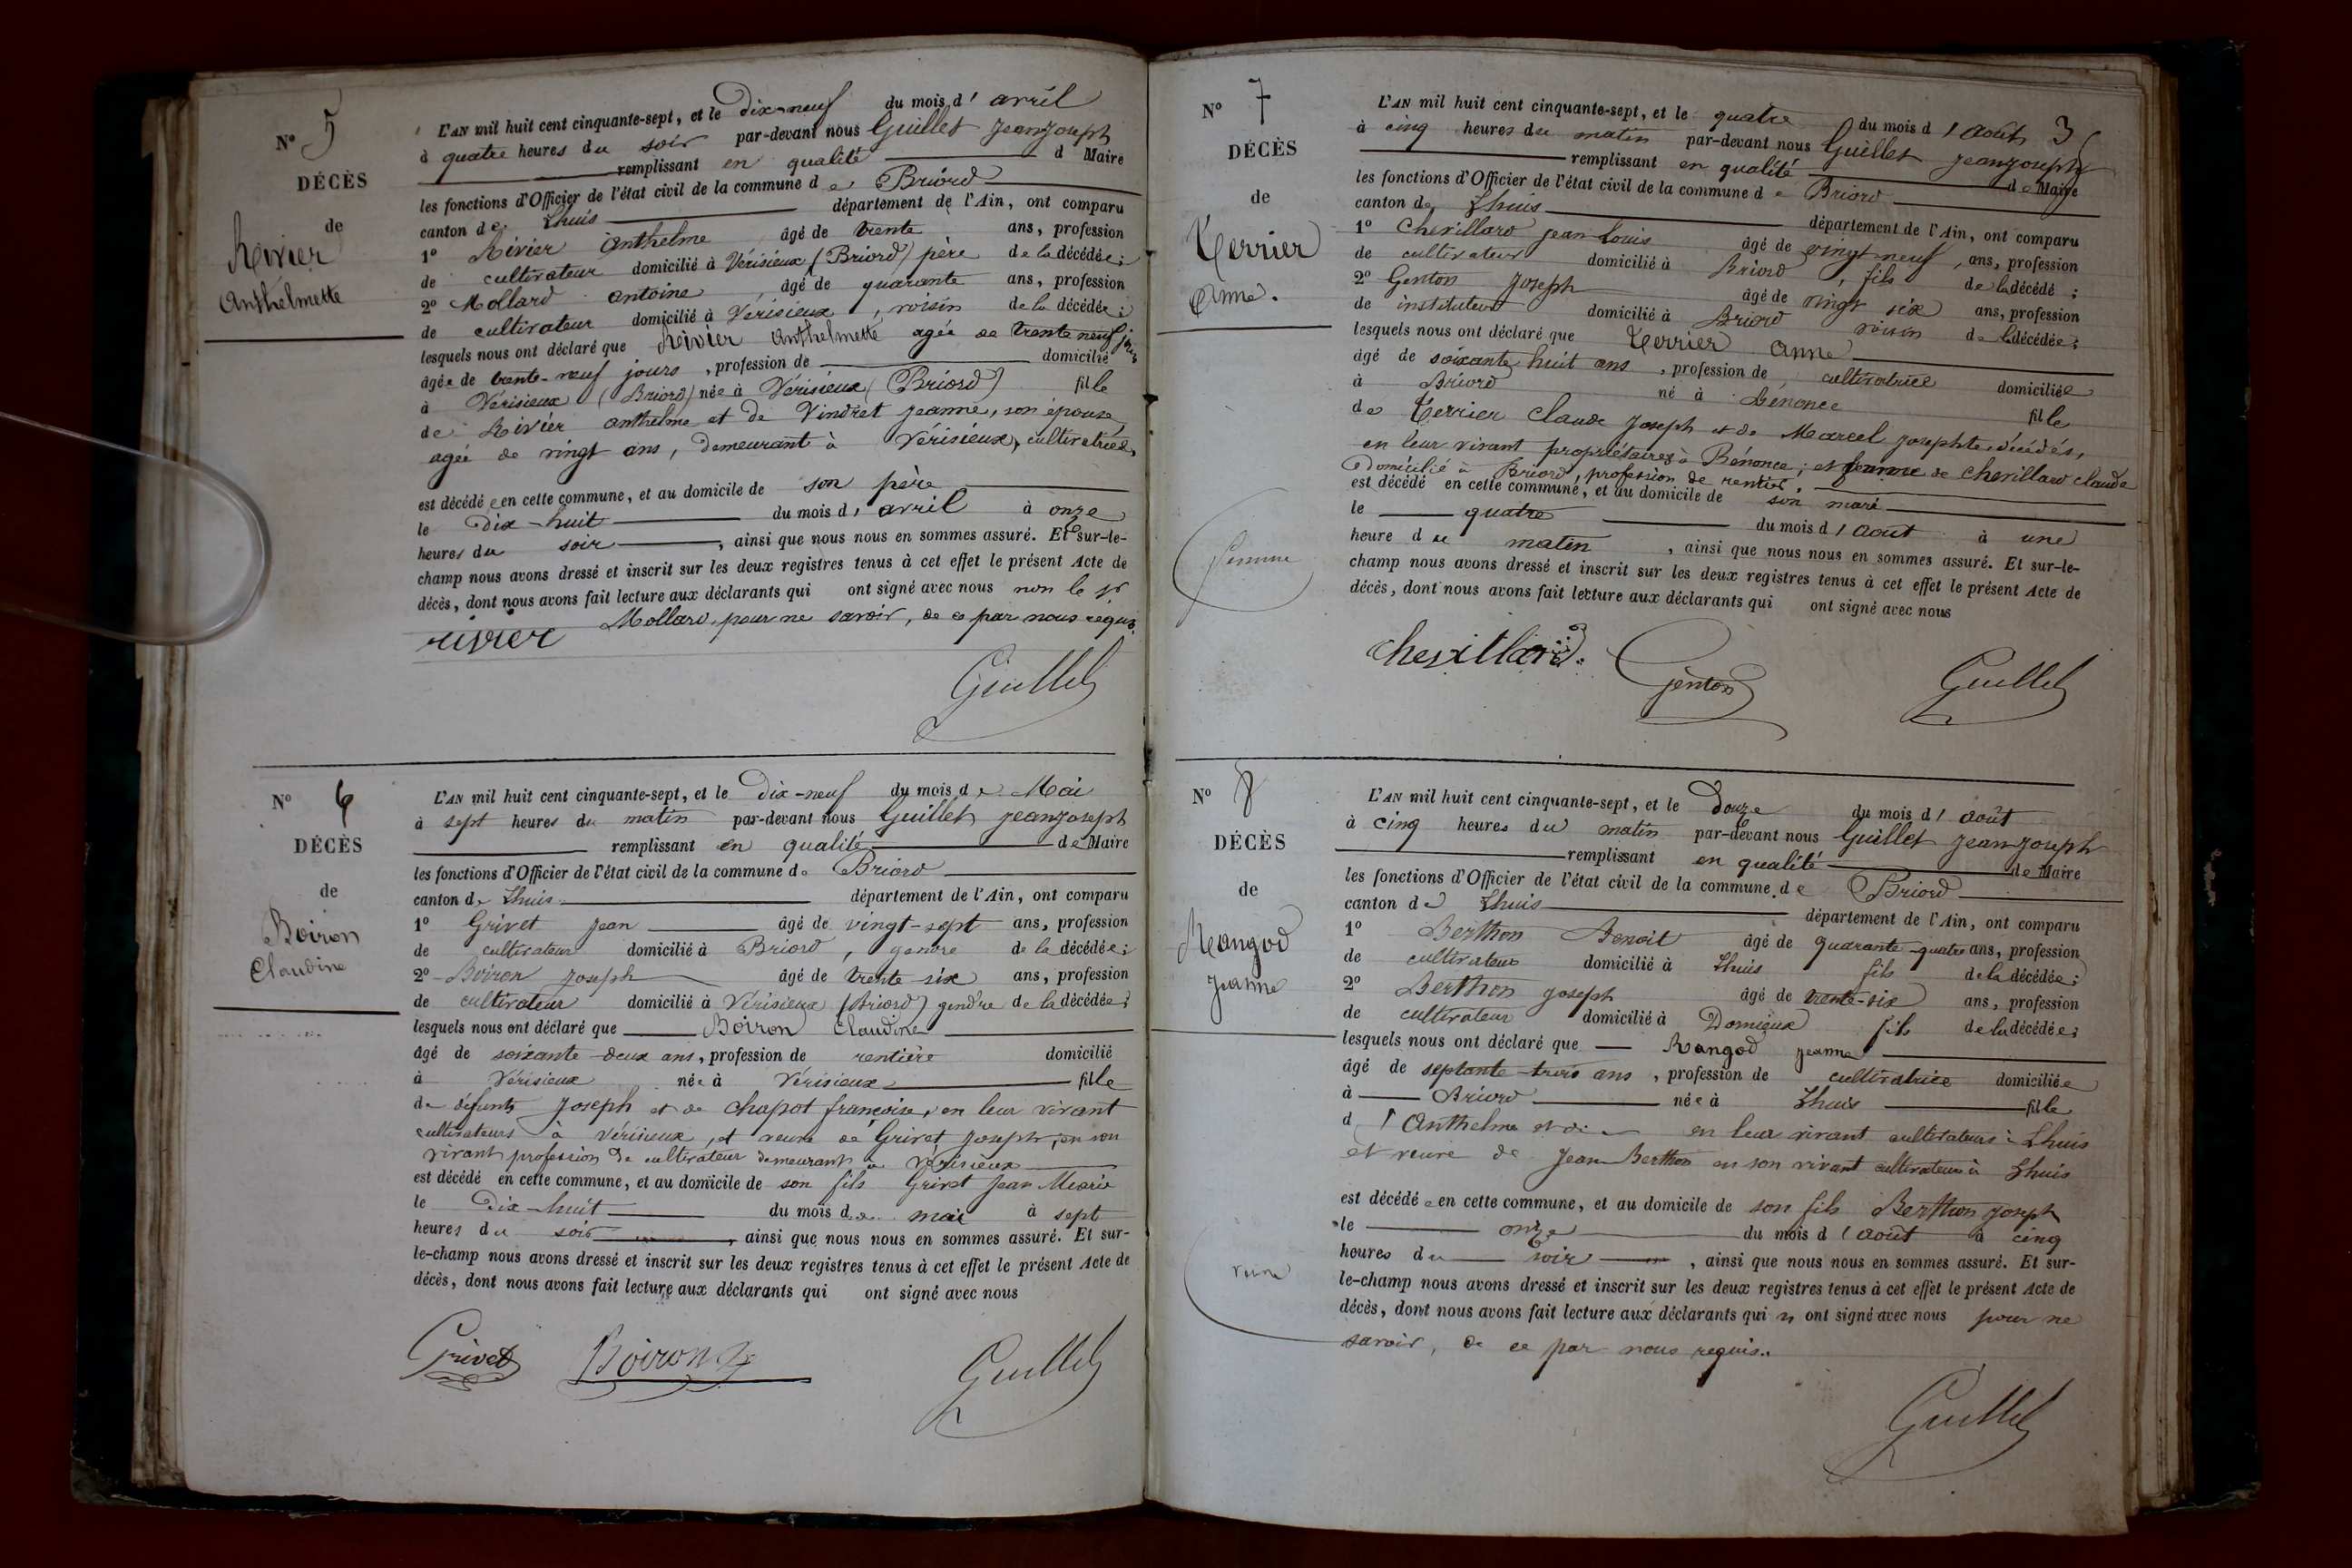 N° 5
DÉCÈS
de
Rivier
Anthelmette
L'AN mil huit cent cinquante-sept, et le Dix-neuf du mois d' avril
à quatre heures du soir par-devant nous Guillet Jean Joseph
remplissant en qualité d Maire
les fonctions d'Officier de l'état civil de la commune de Briord
canton de Lhuis département de l'Ain, ont comparu
1° Rivier Anthelme âgé de trente ans, profession
de cultivateur domicilié à Vérisieux (Briord) père de la décédée;
2° Mollard Antoine âgé de quarante ans, profession
de cultivateur domicilié à Vérisieux, voisin de la décédée;
lesquels nous ont déclaré que Rivier Anthelmette agée de trente neuf jours
âgée de trente-neuf jours, profession de domicilié
à Vérisieux (Briord) née à Vérisieux (Briord) fille
de Rivier anthelme et de Vindret Jeanne, son épouse,
agée de vingt ans, demeurant à Vérisieux, cultivatrice,
est décédée en cette commune, et au domicile de son père
le Dix-huit du mois d' avril à onze
heures du soir, ainsi que nous nous en sommes assuré. Et sur-le-
champ nous avons dressé et inscrit sur les deux registres tenus à cet effet le présent Acte de
décès, dont nous avons fait lecture aux déclarants qui ont signé avec nous non le sr
Mollard, pour ne savoir, de ce par nous requis.
rivier
Guillet
N° 6
DÉCÈS
de
Boiron
Claudine
L'AN mil huit cent cinquante-sept, et le Dix-neuf du mois de Mai
à sept heures du matin par-devant nous Guillet Jean Joseph
remplissant en qualité de Maire
les fonctions d'Officier de l'état civil de la commune de Briord
canton de Lhuis département de l'Ain, ont comparu
1° Grivet Jean âgé de vingt-sept ans, profession
de cultivateur domicilié à Briord, gendre de la décédée;
2° Boiron Joseph âgé de trente six ans, profession
de cultivateur domicilié à Vérisieux (Briord) gendre de la décédée;
lesquels nous ont déclaré que Boiron Claudine
âgé de soixante-deux ans, profession de rentière domicilié
à Vérisieux née à Vérisieux fille
de défunts Joseph et de Chapot françoise, en leur vivant
cultivateurs à Vérisieux, et veuve de Grivet Joseph, en son
vivant profession de cultivateur demeurant à Vérisieux
est décédé en cette commune, et au domicile de son fils Grivet Jean Marie
le Dix-huit du mois de mai à sept
heures du soir, ainsi que nous nous en sommes assuré. Et sur-
le-champ nous avons dressé et inscrit sur les deux registres tenus à cet effet le présent Acte de
décès, dont nous avons fait lecture aux déclarants qui ont signé avec nous
Grivet Boiron Guillet
N° 7
DÉCÈS
de
Terrier
Anne.
3
L'AN mil huit cent cinquante-sept, et le quatre du mois d'Août
à cinq heures du matin par-devant nous Guillet Jean Joseph
remplissant en qualité de Maire
les fonctions d'Officier de l'état civil de la commune de Briord
canton de Lhuis département de l'Ain, ont comparu
1° Chevillard jean Louis âgé de vingt-neuf, ans, profession
de cultivateur domicilié à Briord, fils de la décédé;
2° Genton Joseph âgé de vingt six ans, profession
de instituteur domicilié à Briord voisin de la décédée;
lesquels nous ont déclaré que Terrier Anne
âgé de soixante huit ans, profession de cultivatrice domiciliée
à Briord né à Bénonce fille
de Terrier Claude Joseph et de Marcel Josephte, décédés,
en leur vivant propriétaires à Bénonce; et femme de Chevillard Claude
domicilié à Briord, profession de rentier,
est décédé en cette commune, et au domicile de son mari
le quatre du mois d'Août à une
heure du matin, ainsi que nous nous en sommes assuré. Et sur-le-
champ nous avons dressé et inscrit sur les deux registres tenus à cet effet le présent Acte de
décès, dont nous avons fait lecture aux déclarants qui ont signé avec nous
femme
Chevillard. Genton Guillet
N° 8
DÉCÈS
de
Rangod
Jeanne
L'AN mil huit cent cinquante-sept, et le Douze du mois d'août
à cinq heures du matin par-devant nous Guillet Jean Joseph
remplissant en qualité de Maire
les fonctions d'Officier de l'état civil de la commune de Briord
canton de Lhuis département de l'Ain, ont comparu
1° Berthon Benoit âgé de quarante-quatre ans, profession
de cultivateur domicilié à Lhuis fils de la décédée;
2° Berthon Joseph âgé de trente-six ans, profession
de cultivateur domicilié à Dornieux fils de la décédée;
lesquels nous ont déclaré que Rangod Jeanne
âgé de septante-trois ans, profession de cultivatrice domiciliée
à Briord née à Lhuis fille
d'Anthelme et de en leur vivant cultivateurs à Lhuis
et veuve de Jean Berthon en son vivant cultivateur à Lhuis
est décédée en cette commune, et au domicile de son fils Berthon Joseph
le onze du mois d'août à cinq
heures du soir, ainsi que nous nous en sommes assuré. Et sur-
le-champ nous avons dressé et inscrit sur les deux registres tenus à cet effet le présent Acte de
décès, dont nous avons fait lecture aux déclarants qui n ont signé avec nous pour ne
savoir, de ce par nous requis.
veuve
Guillet